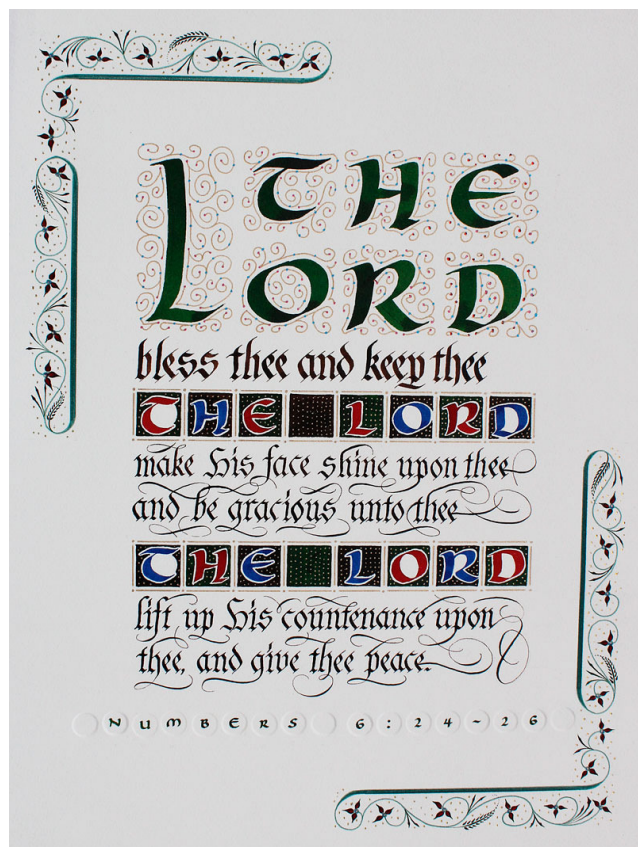 THE
LORD
bless thee and keep thee
THE LORD
make His face shine upon thee
and be gracious unto thee
THE LORD
lift up His countenance upon
thee, and give thee peace.
NUMBERS 6:24~26